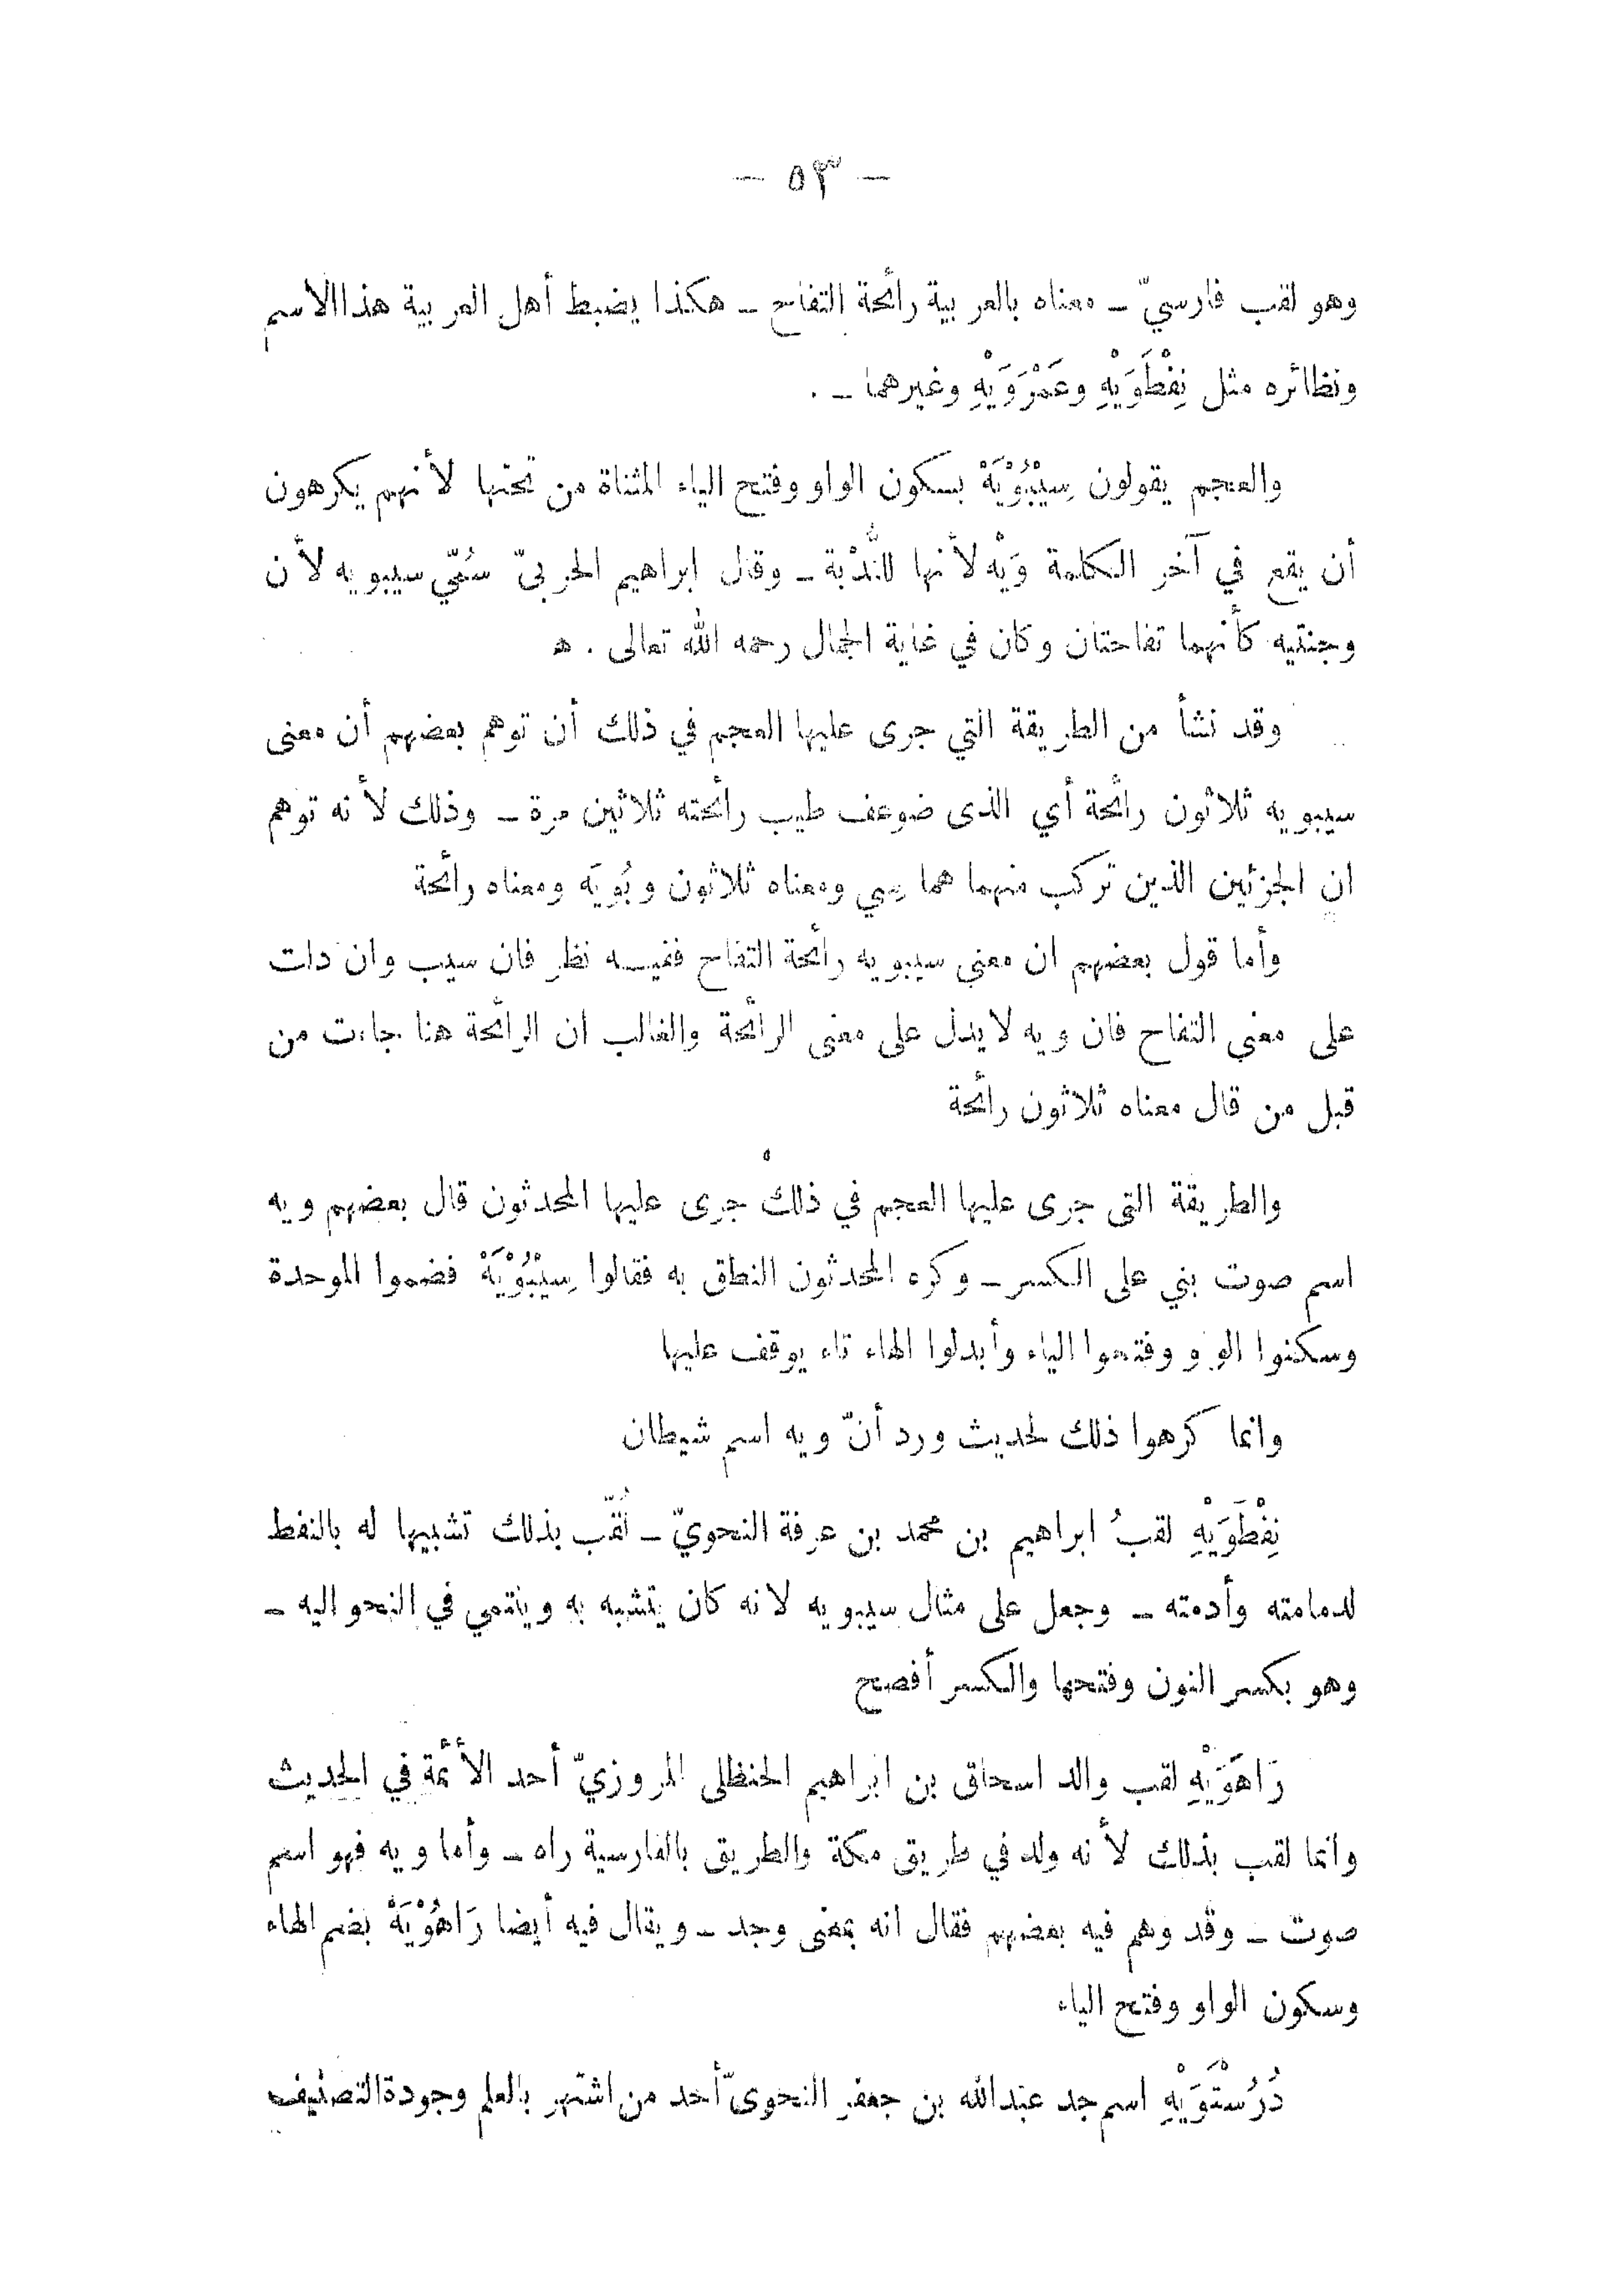 — ٥٣ —
وهو لقب فارسيّ – معناه بالعربية رائحة التفاح – هكذا يضبط أهل العربية هذا الاسم
ونظائره مثل نِفْطَوَيْهِ وعَمْرَوَيْهِ وغيرهما – .
والعجم يقولون سِيْبُوْيَهْ بسكون الواو وفتح الياء المثناة من تحتها لأنهم يكرهون
أن يقع في آخر الكلمة وَيْه لأنها للنُّدْبة – وقال ابراهيم الحربىّ سُمّي سيبويه لأن
وجنتيه كأنهما تفاحتان وكان في غاية الجمال رحمه الله تعالى . ه
وقد نشأ من الطريقة التي جرى عليها العجم في ذلك أن توهم بعضهم أن معنى
سيبويه ثلاثون رائحة أي الذى ضوعف طيب رائحته ثلاثين مرة – وذلك لأنه توهم
ان الجزئين الذين تركب منهما هما سِي ومعناه ثلاثون وبُويَه ومعناه رائحة
وأما قول بعضهم ان معنى سيبويه رائحة التفاح ففيه نظر فان سيب وان دلت
على معنى التفاح فان ويه لا يدل على معنى الرائحة والغالب ان الرائحة هنا جاءت من
قبل من قال معناه ثلاثون رائحة
والطريقة التى جرى عليها العجم في ذلك جرى عليها المحدثون قال بعضهم ويه
اسم صوت بني على الكسر – وكره المحدثون النطق به فقالوا سِيْبُوْيَهْ فضموا الموحدة
وسكنوا الواو وفتحوا الياء وأبدلوا الهاء تاء يوقف عليها
وانما كرهوا ذلك لحديث ورد أنّ ويه اسم شيطان
نِفْطَوَيْهِ لقبُ ابراهيم بن محمد بن عرفة النحويّ – لُقّب بذلك تشبيها له بالنفط
لدمامته وأدمته – وجعل على مثال سيبويه لانه كان يتشبه به وينتمي في النحو اليه –
وهو بكسر النون وفتحها والكسر أفصح
رَاهَوَيْهِ لقب والد اسحاق بن ابراهيم الحنظلى المروزيّ أحد الأئمة في الحديث
وانما لقب بذلك لأنه ولد في طريق مكة والطريق بالفارسية راه – وأما ويه فهو اسم
صوت – وقد وهم فيه بعضهم فقال انه بمعنى وجد – ويقال فيه أيضا رَاهُوْيَهْ بضم الهاء
وسكون الواو وفتح الياء
دُرُسْتَوَيْهِ اسم جد عبدالله بن جعفر النحوىّ أحد من اشتهر بالعلم وجودة التصنيف